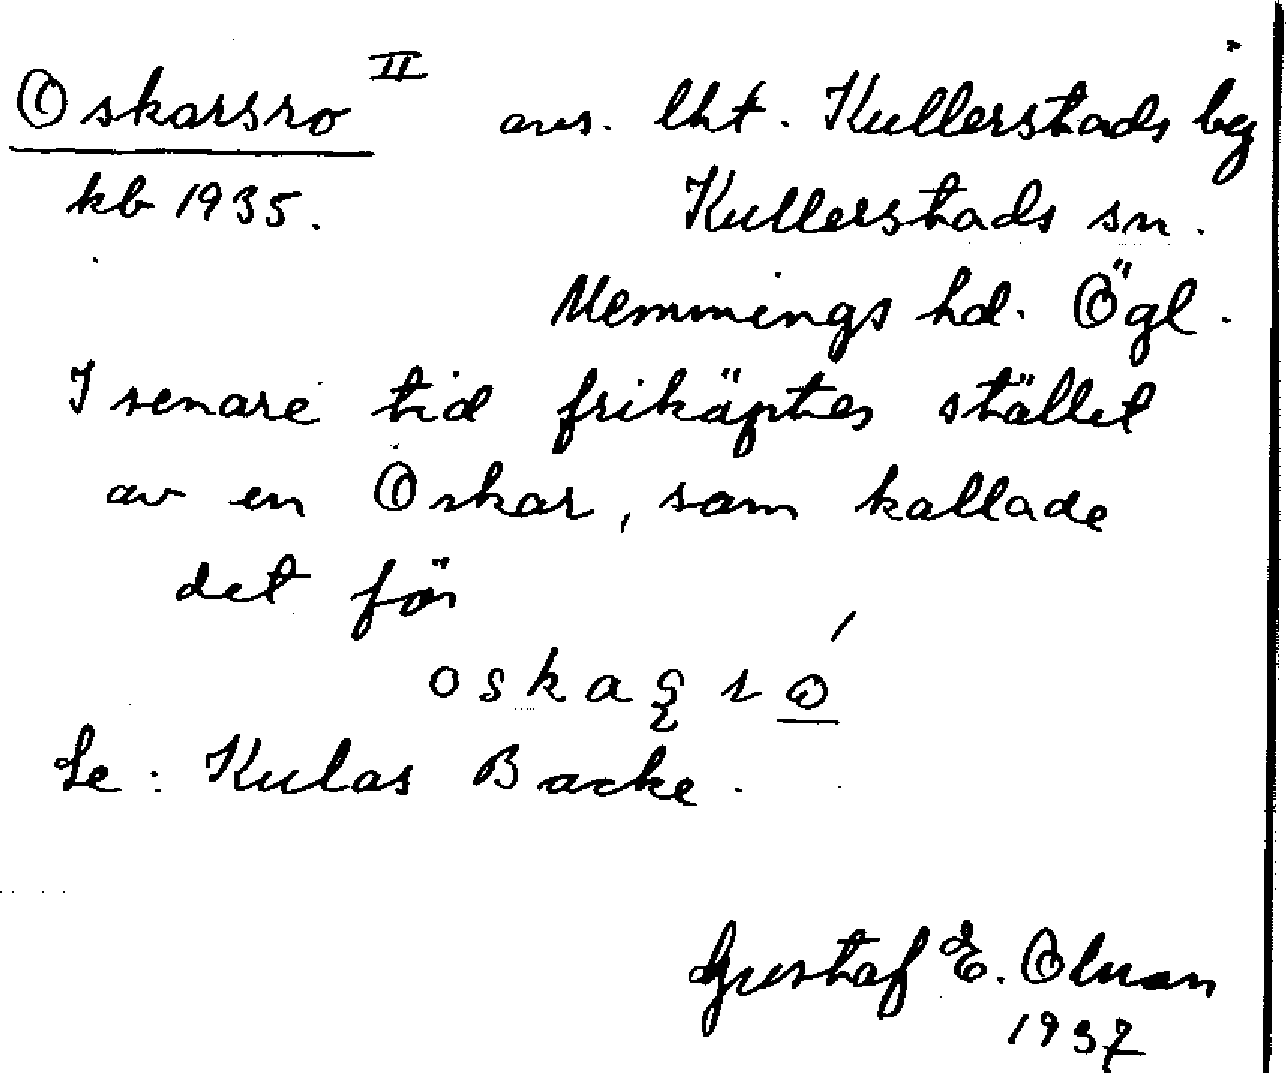 Oskarsro II avs. lht. Kullerstads by
kb 1935. Kullerstads sn.
Memmings hd. Ögl.
I senare tid friköptes stället
av en Oskar, som kallade
det för
Se: Kulas Backe.
Gustaf E. Olman
1937